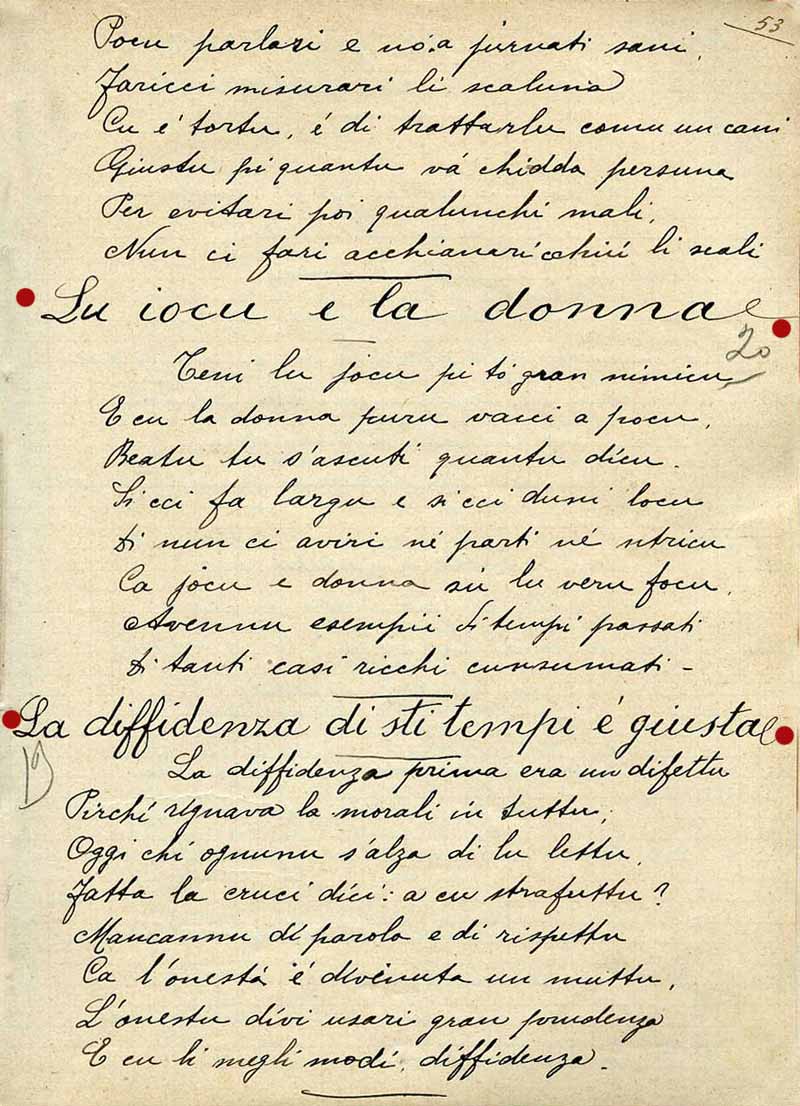 53
Pocu parlari e nò a jurnati sani,
Faricci misurari li scaluna
Cu é tortu, é di trattarlu comu un cani
Giustu pi quantu vá chidda persuna
Per evitari poi qualunchi mali,
Nun ci fari acchianari cchiú li scali
Lu iocu e la donna
20
Teni lu jocu pi tó gran nimicu
E cu la donna puru vacci a pocu,
Beatu tu s'ascuti quantu dicu.
Si cci fa largu e si cci duni locu
Di nun ci aviri né parti né ntricu
Ca jocu e donna sú lu veru focu,
Avennu esempii di tempi passati
Di tanti casi ricchi cunsumati -
La diffidenza di sti tempi é giusta
19
La diffidenza prima era un difettu
Pirchí rignava la morali in tuttu;
Oggi chi ognunu s'alza di lu lettu,
Fatta la cruci dici: a cu strafuttu?
Mancannu di parola e di rispettu
Ca l'onestá é divenuta un muttu,
L'onestu divi usari gran prudenza
E cu li megli modi, diffidenza.